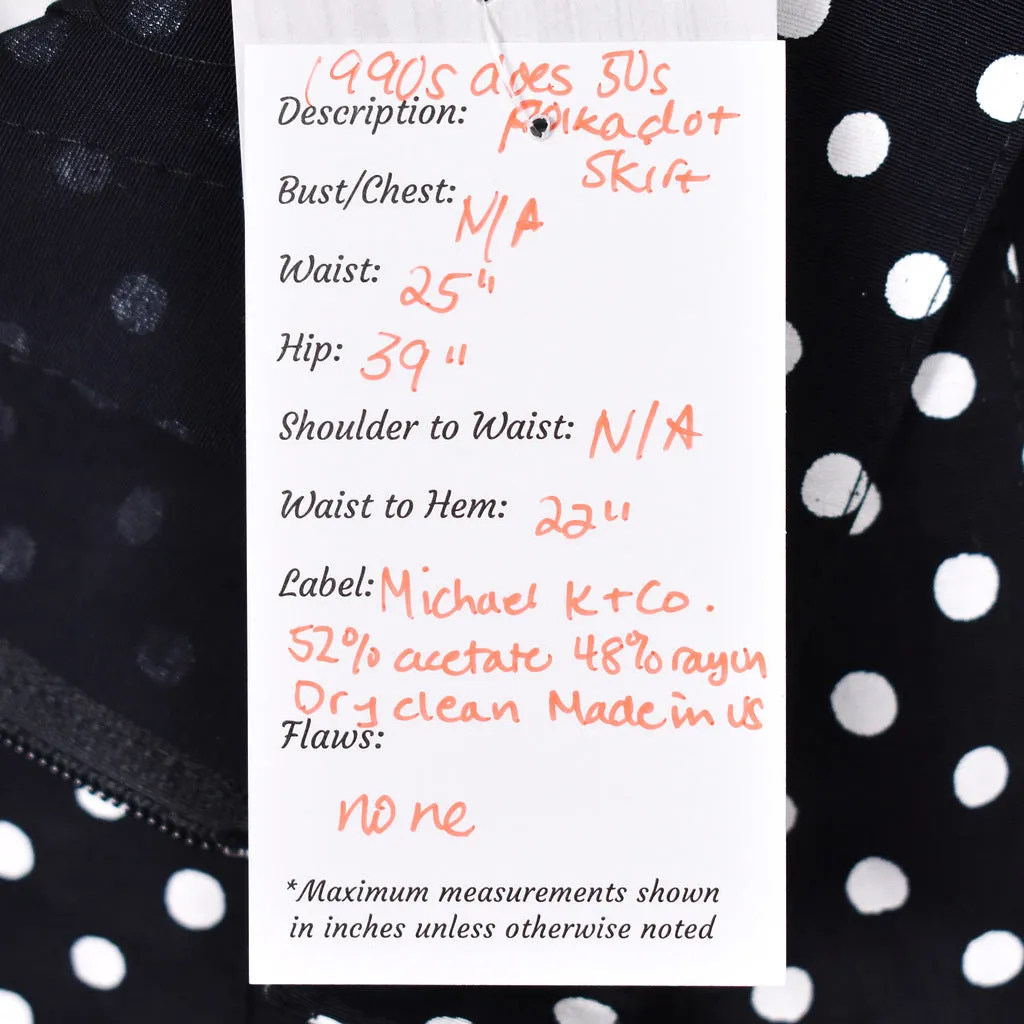 1990s does 50s
Description: Polkadot
Skirt
Bust/Chest: N/A
Waist: 25"
Hip: 39"
Shoulder to Waist: N/A
Waist to Hem: 22"
Label: Michael K + Co.
52% acetate 48% rayon
Dry clean Made in US
Flaws:
none
*Maximum measurements shown
in inches unless otherwise noted